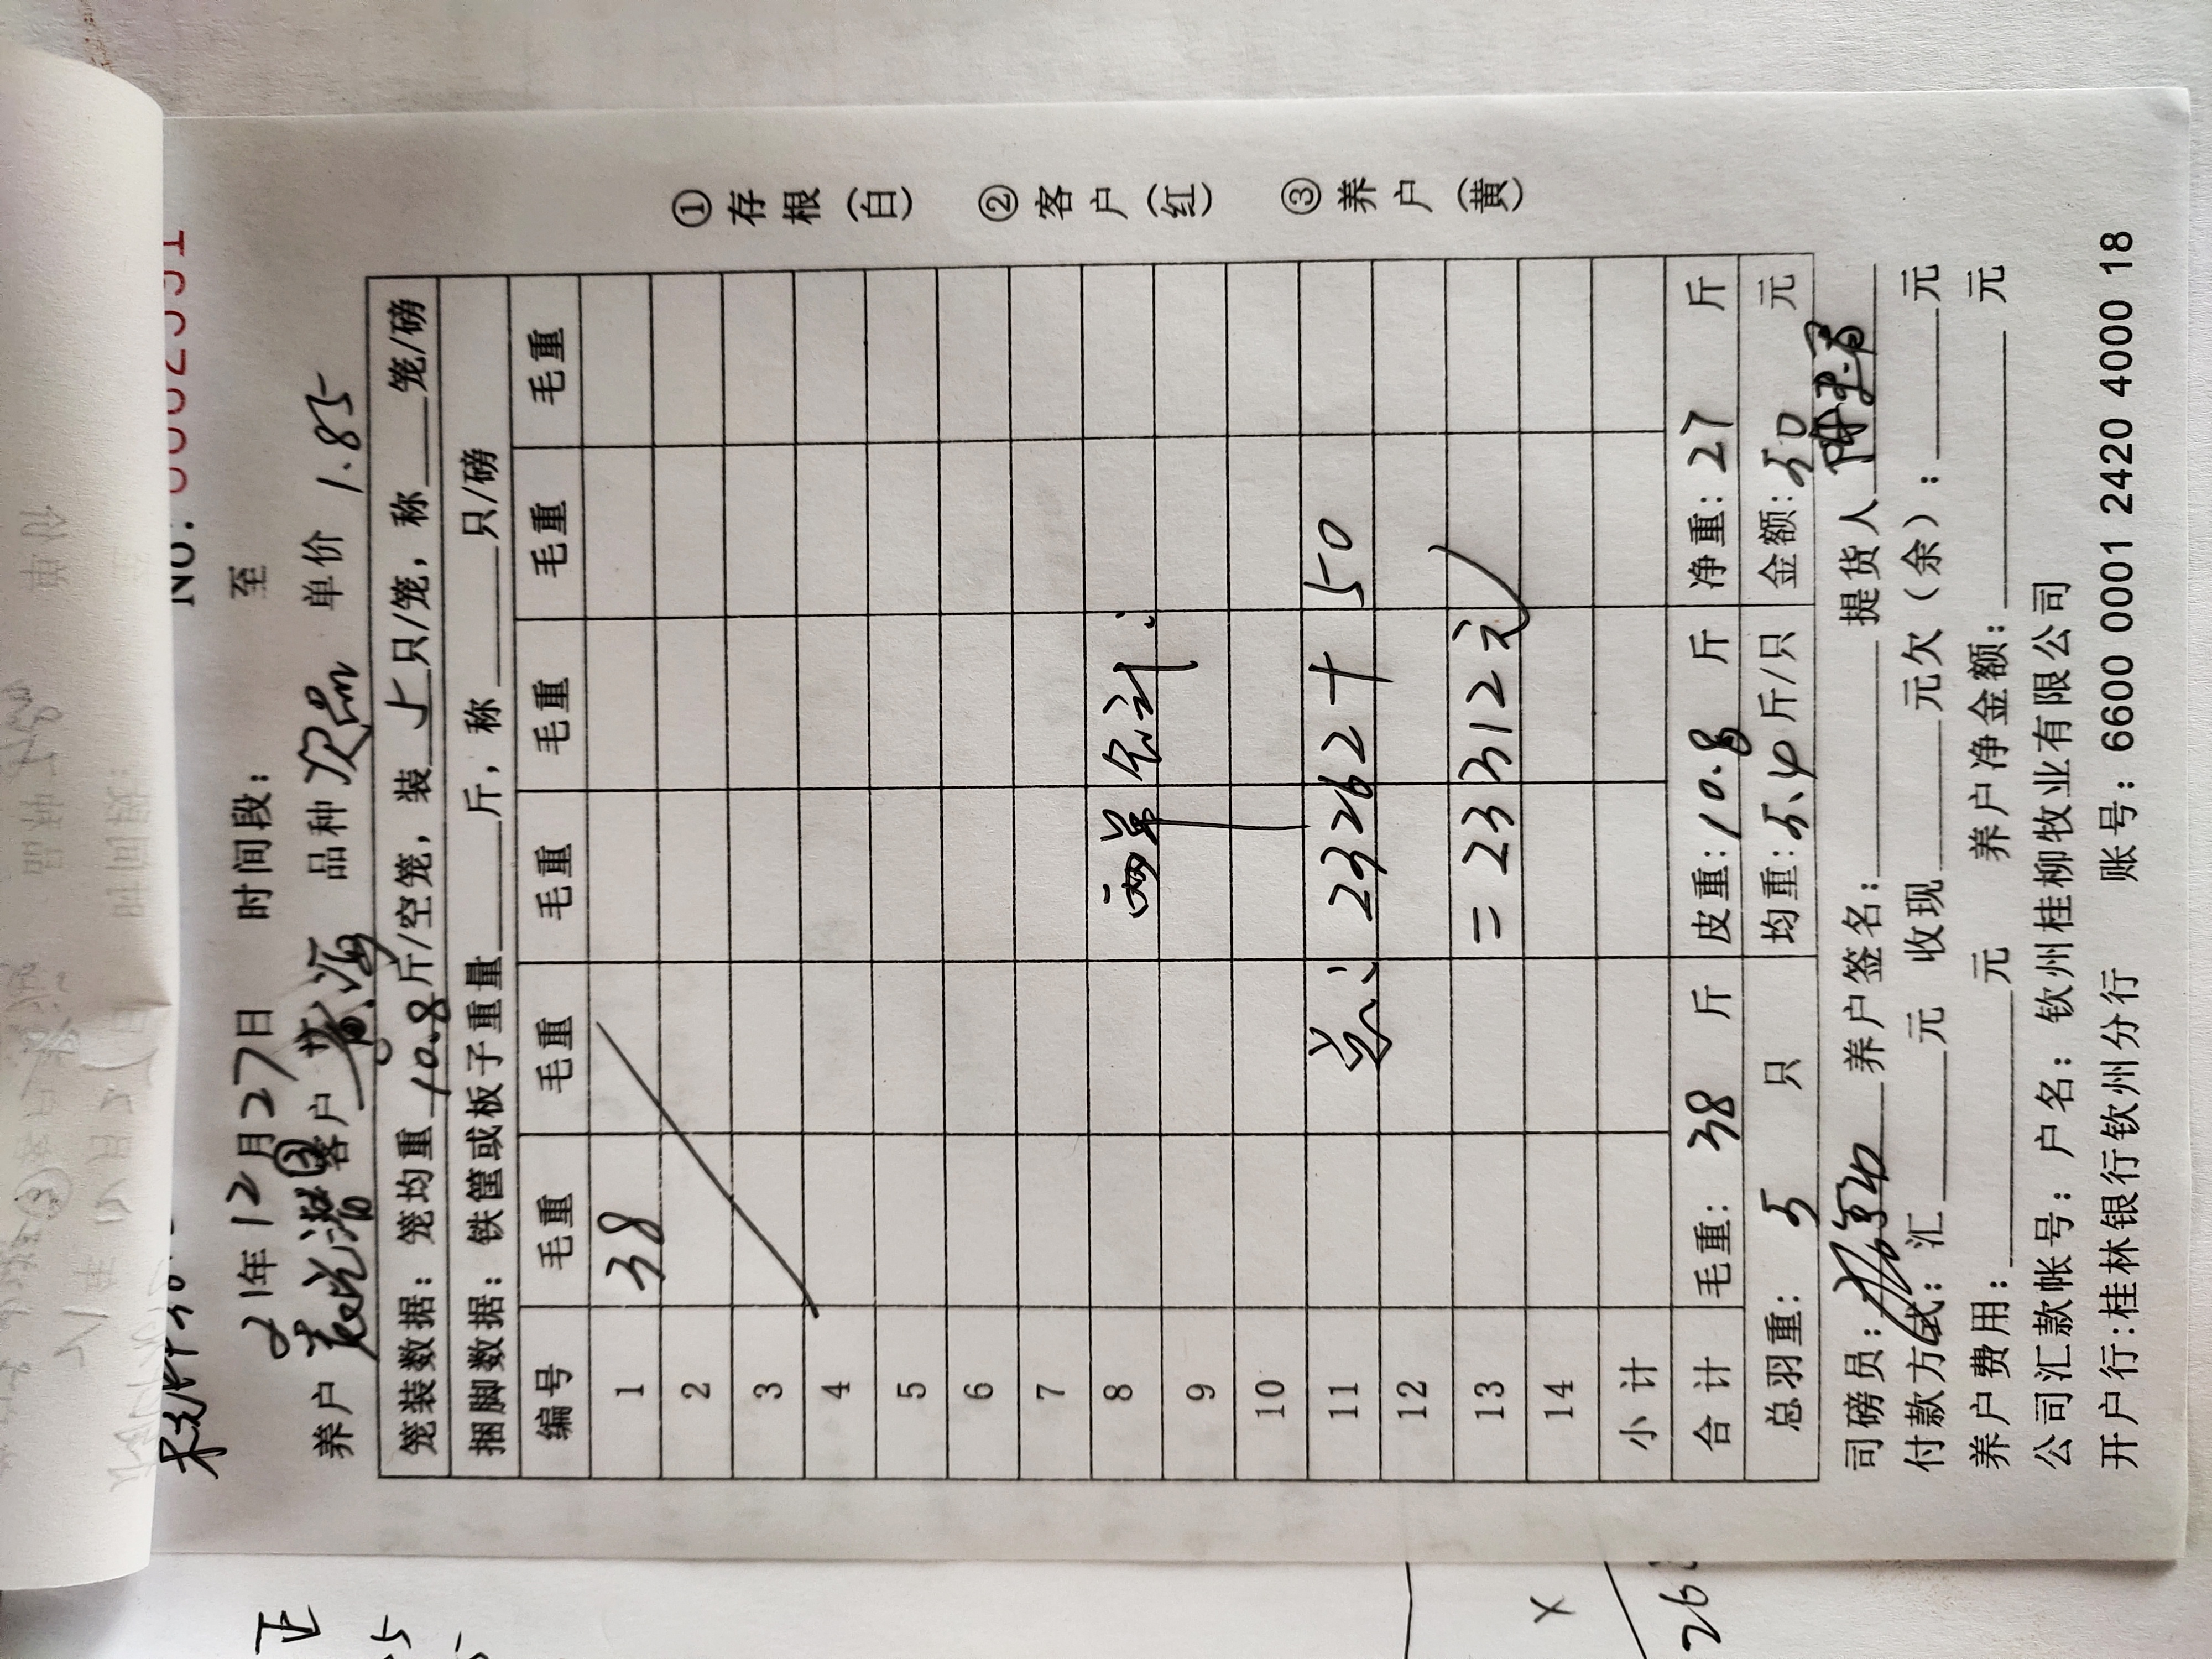 NO.
21年12月27日 时间段： 至
养户 客户 黄海 品种 次品 单价 1.85
笼装数据：笼均重10.8斤/空笼，装5只/笼，称 笼/磅
捆脚数据：铁筐或板子重量 斤，称 只/磅
编号 毛重 毛重 毛重 毛重 毛重 毛重
1 38
2
3
4
5
6
7
8 两单合计：
9
10
11 总：23262+50
12
13 =23312元
14
小计
合计 毛重：38 斤 皮重：10.8 斤 净重：27 斤
总羽重：5 只 均重：5.4斤/只 金额：50 元
司磅员： 养户签名： 提货人
付款方式：汇 元 收现 元欠（余）： 元
养户费用： 元 养户净金额： 元
公司汇款帐号：户名：钦州桂柳牧业有限公司
开户行：桂林银行钦州分行 账号：6600 0001 2420 4000 18
①存根（白） ②客户（红） ③养户（黄）
正
5
×